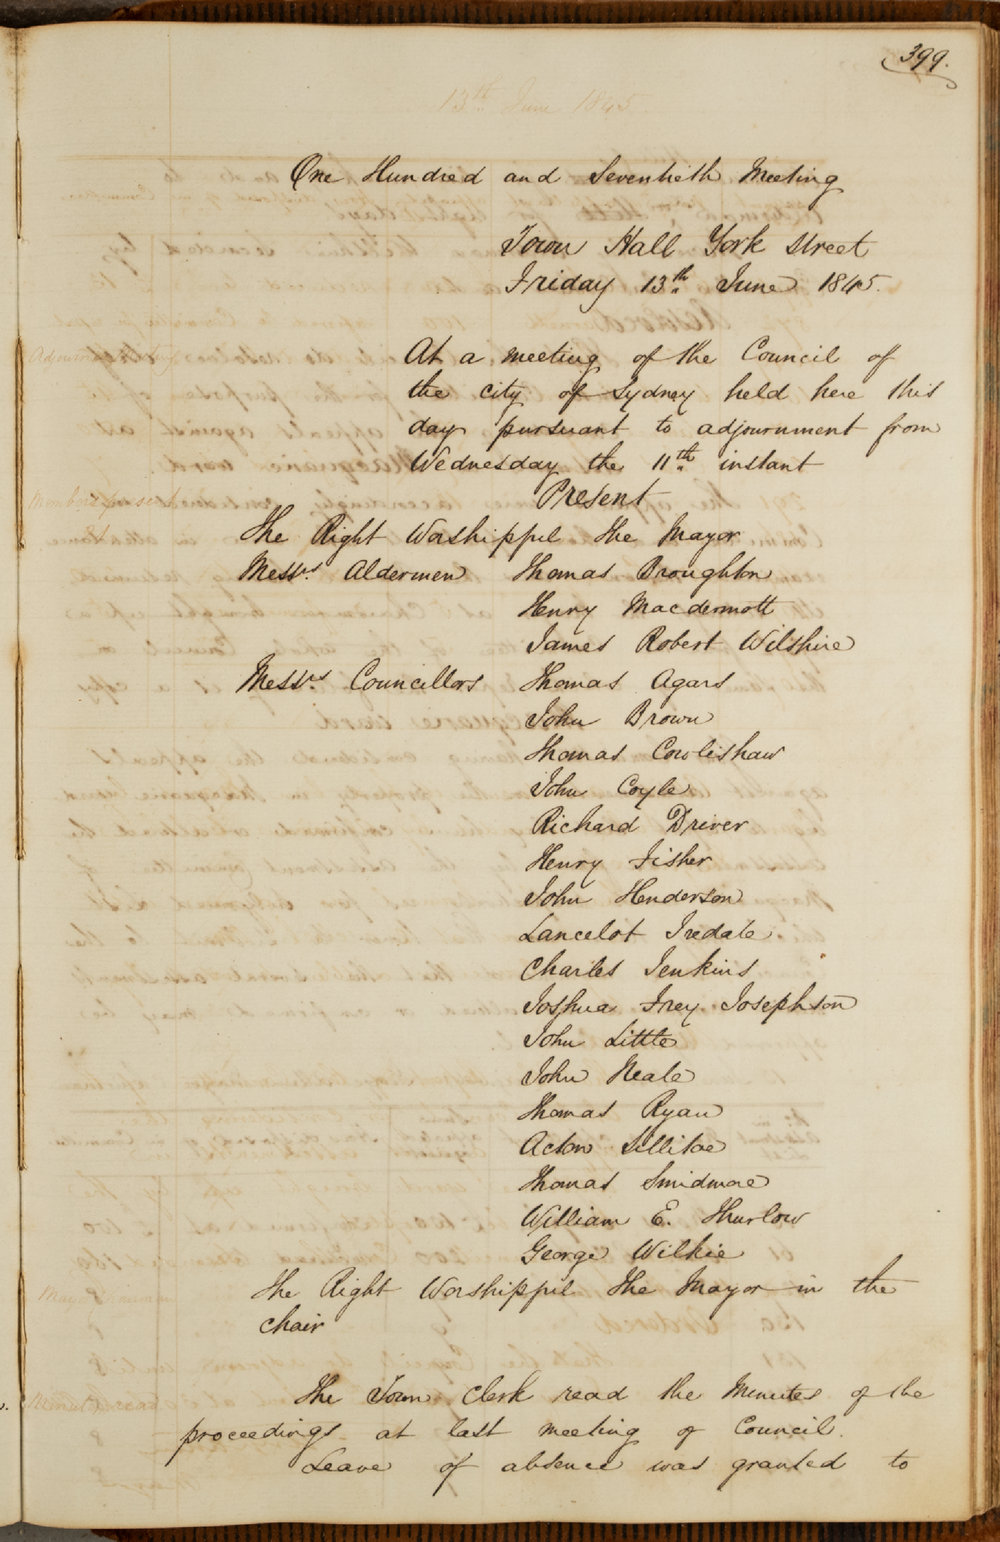 399.
13th June 1845
One Hundred and Seventieth Meeting
Town Hall York Street
Friday 13th June 1845.
Adjourned Meeting
At a meeting of the Council of
the city of Sydney held here this
day pursuant to adjournment from
Wednesday the 11th instant
Members present
Present
The Right Worshippil the Mayor
Messrs Aldermen Thomas Broughton
Henry Macdermott
James Robert Wilshire
Messrs Councillors Thomas Agars
John Brown
Thomas Cowlishaw
John Coyle
Richard Driver
Henry Fisher
John Henderson
Lancelot Iredale
Charles Jenkins
Joshua Frey Josephson
John Little
John Neale
Thomas Ryan
Acton Sillitoe
Thomas Smidmore
William E. Thurlow
George Wilkie
The Right Worshippil the Mayor in the
Chair
The Town Clerk read the Minutes of the
proceedings at last meeting of Council.
Leave of absence was granted to